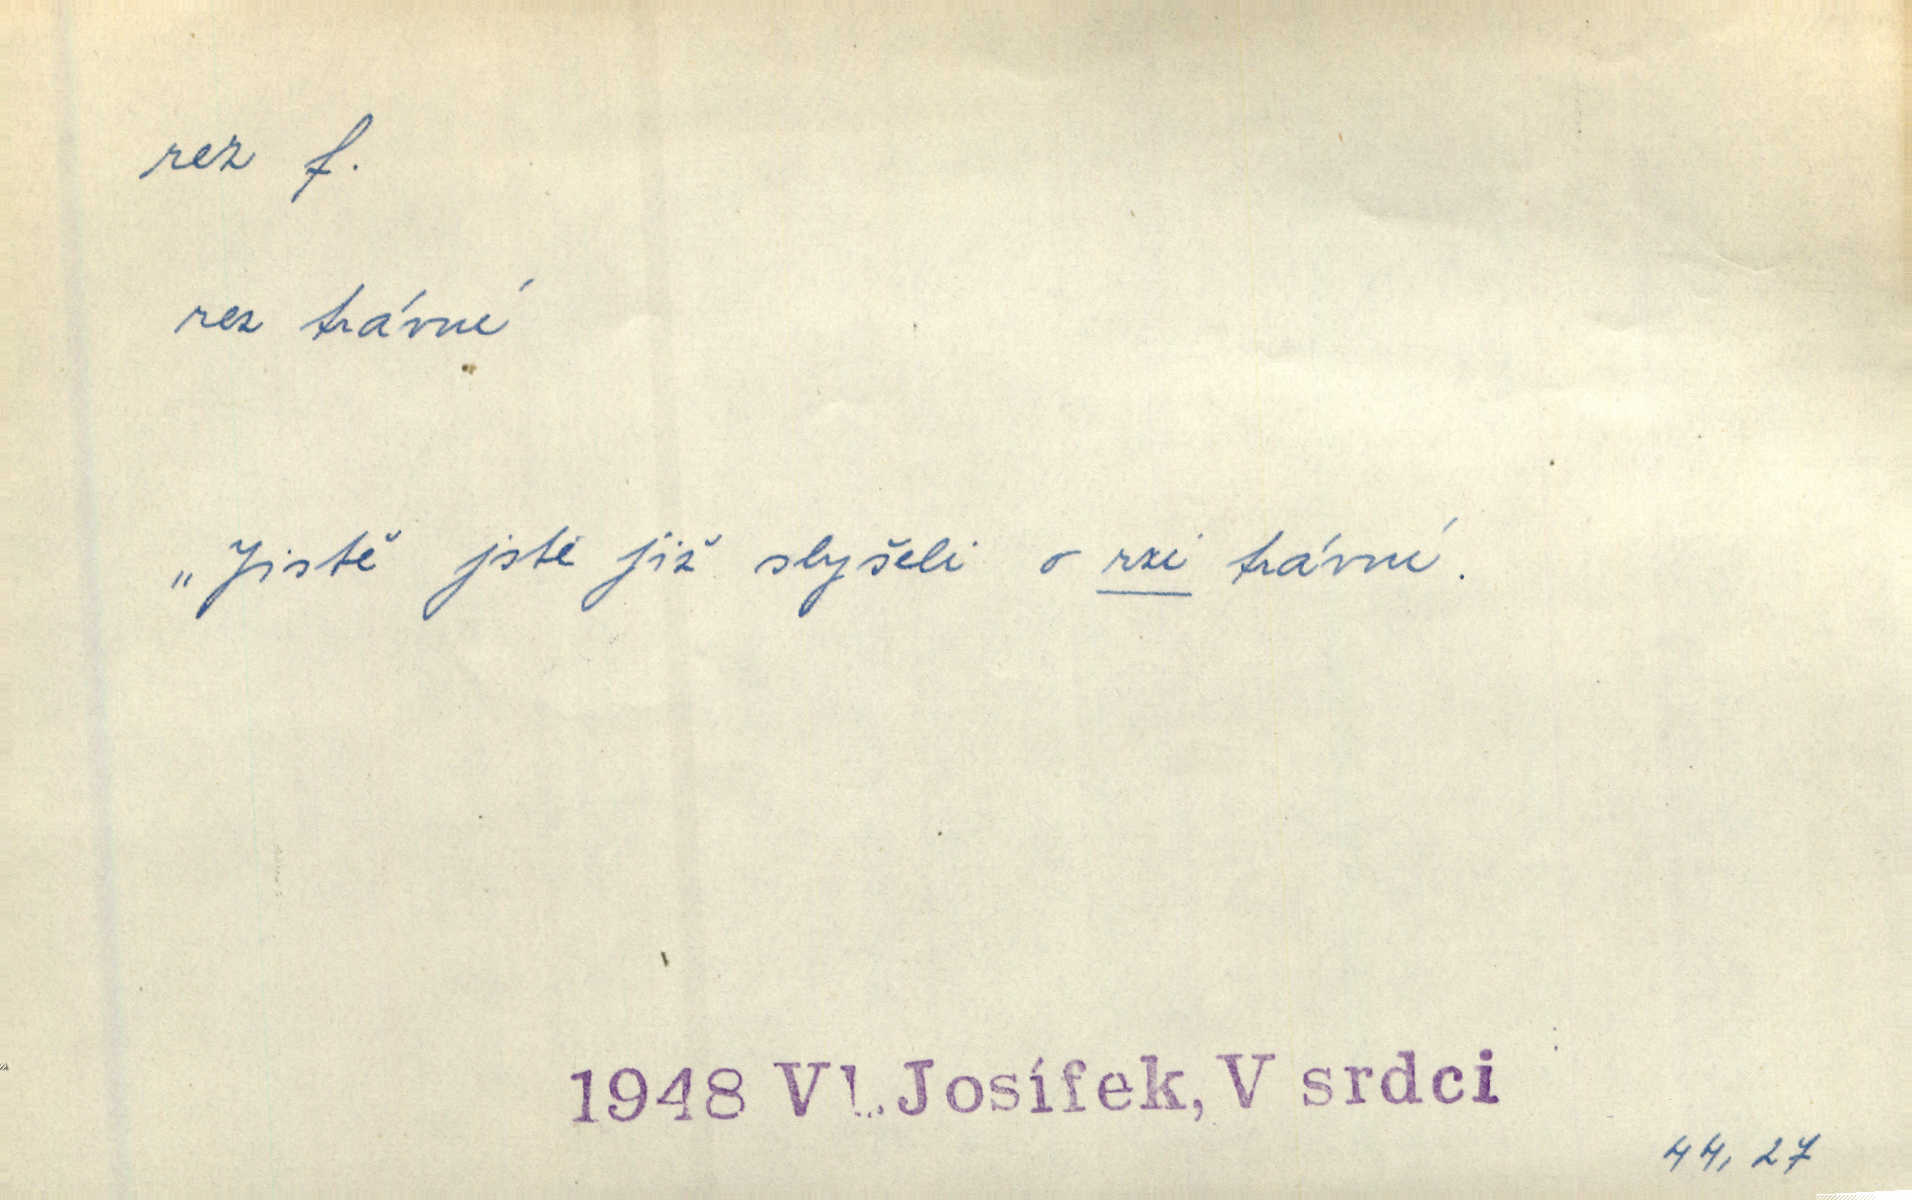 rez f.
rez trávní
„Jistě jste již slyšeli o rzi trávní.
1948 Vl. Josífek, V srdci
44, 27